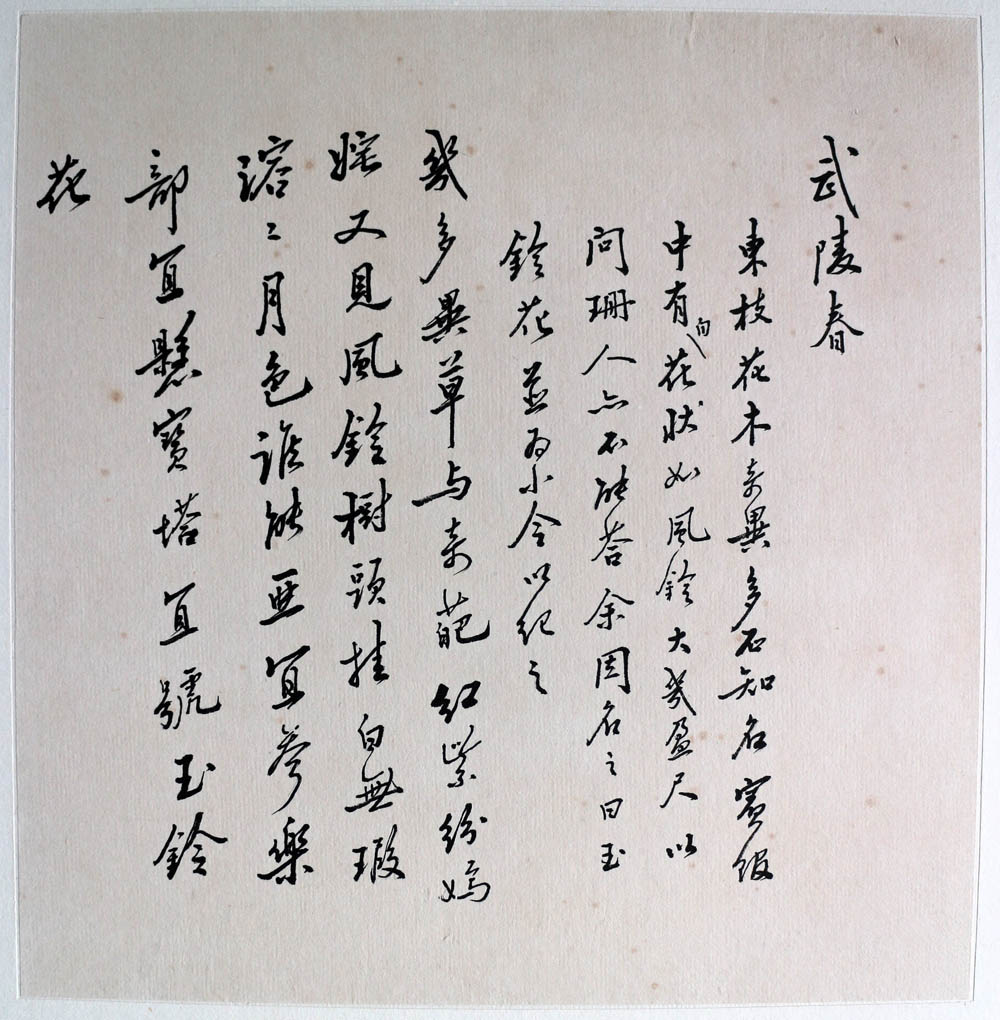 武陵春
東枝花木奇異多不知名賓館
中有白花狀如風鈴大幾盈尺以
問珊人亦不能答余因名之曰玉
鈴花並為小令以紀之
幾多異草与奇葩紅紫紛嫣
姹又見風鈴樹頭挂白無瑕
溶〻月色誰能亞宜參樂
部宜懸寶塔宜號玉鈴
花